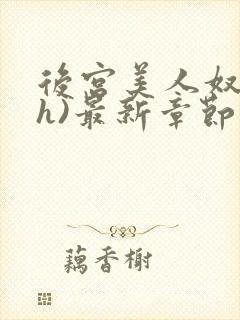 後宫美人奴
h)最新章节
藕香榭